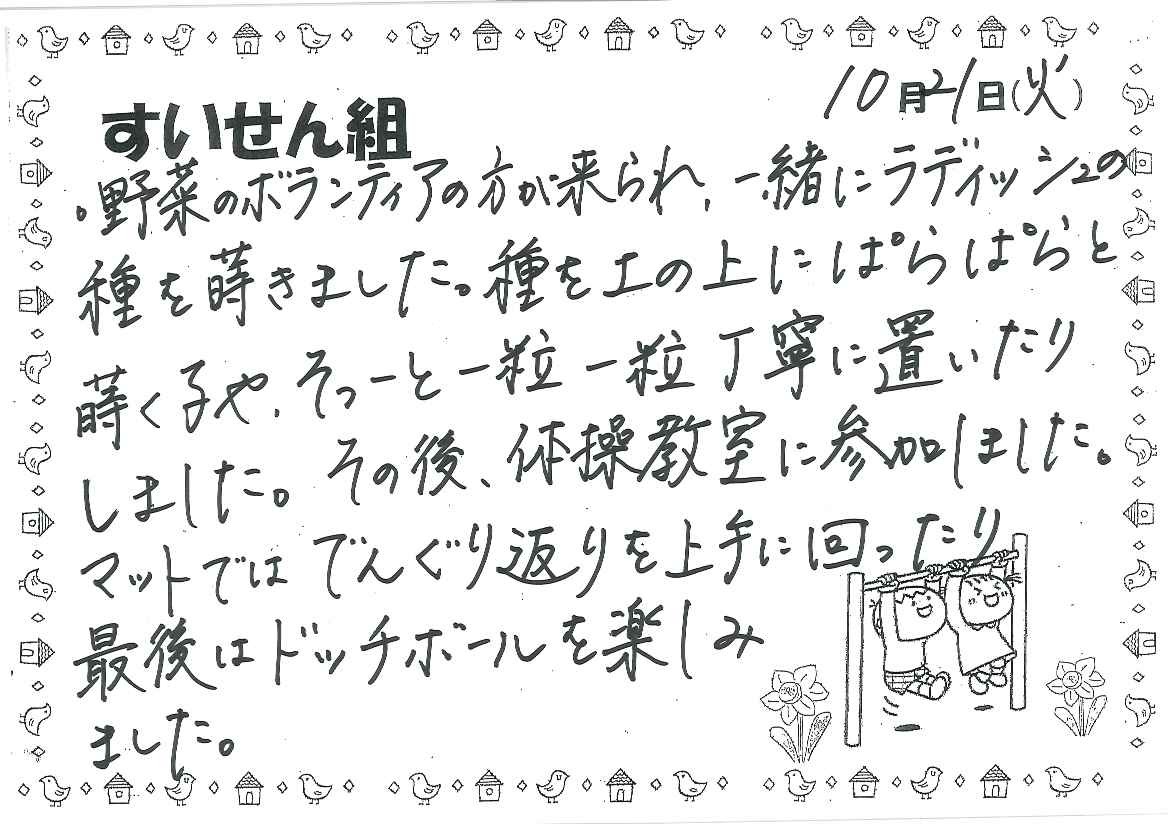 10月21日(火)
すいせん組
。野菜のボランティアの方が来られ、一緒にラディッシュの
種を蒔きました。種を土の上にぱらぱらと
蒔く子や、そっーと一粒一粒丁寧に置いたり
しました。その後、体操教室に参加しました。
マットではでんぐり返りを上手に回ったり
最後はドッチボールを楽しみ
ました。